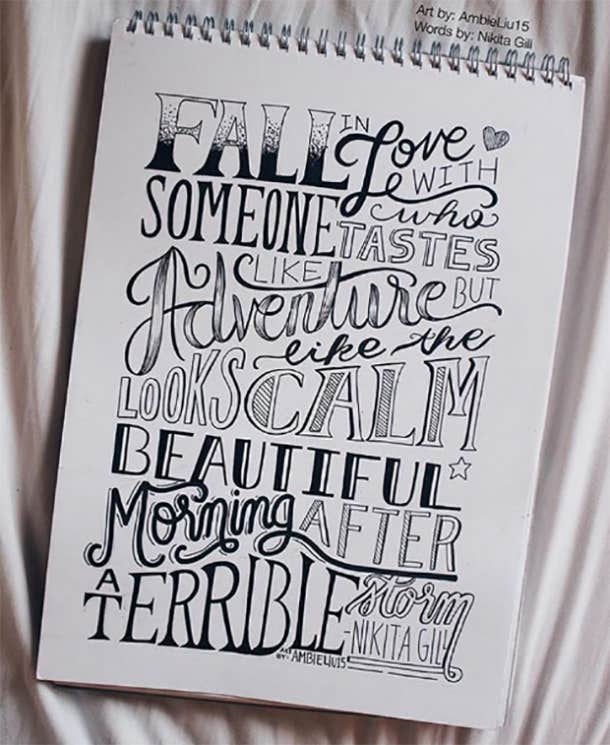 Art by: AmbieLiu15
Words by: Nikita Gill
FALL IN Love
WITH
SOMEONE who
TASTES
LIKE
Adventure BUT
LOOKS like the
CALM
BEAUTIFUL
Morning AFTER
A TERRIBLE storm
-NIKITA GILL
ART BY: AMBIELIU15